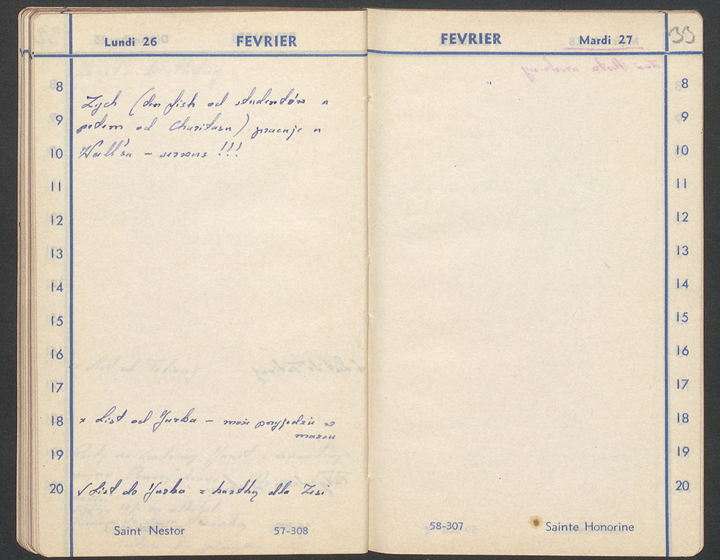 Lundi 26
FEVRIER
8
9
10
11
12
13
14
15
16
17
18
19
20
Zych (ten fish od studentów a
potem od Charitasu) pracuje u
Wall'sa – serwus !!!
x List od Jurka – może przyjedzie w
marcu
√ List do Jurka z kartką dla Zosi
Saint Nestor
57-308
FEVRIER
Mardi 27
33
8
9
10
11
12
13
14
15
16
17
18
19
20
58-307
Sainte Honorine